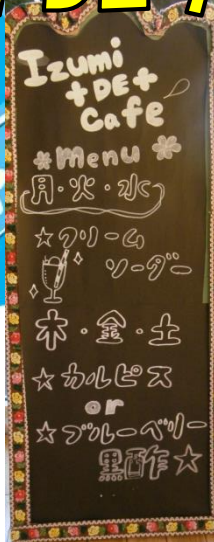 Izumi
+DE+
Cafe
*Menu*
月・火・水
☆クリーム
ソーダー
木・金・土
☆カルピス
or
☆ブルーベリー
黒酢☆